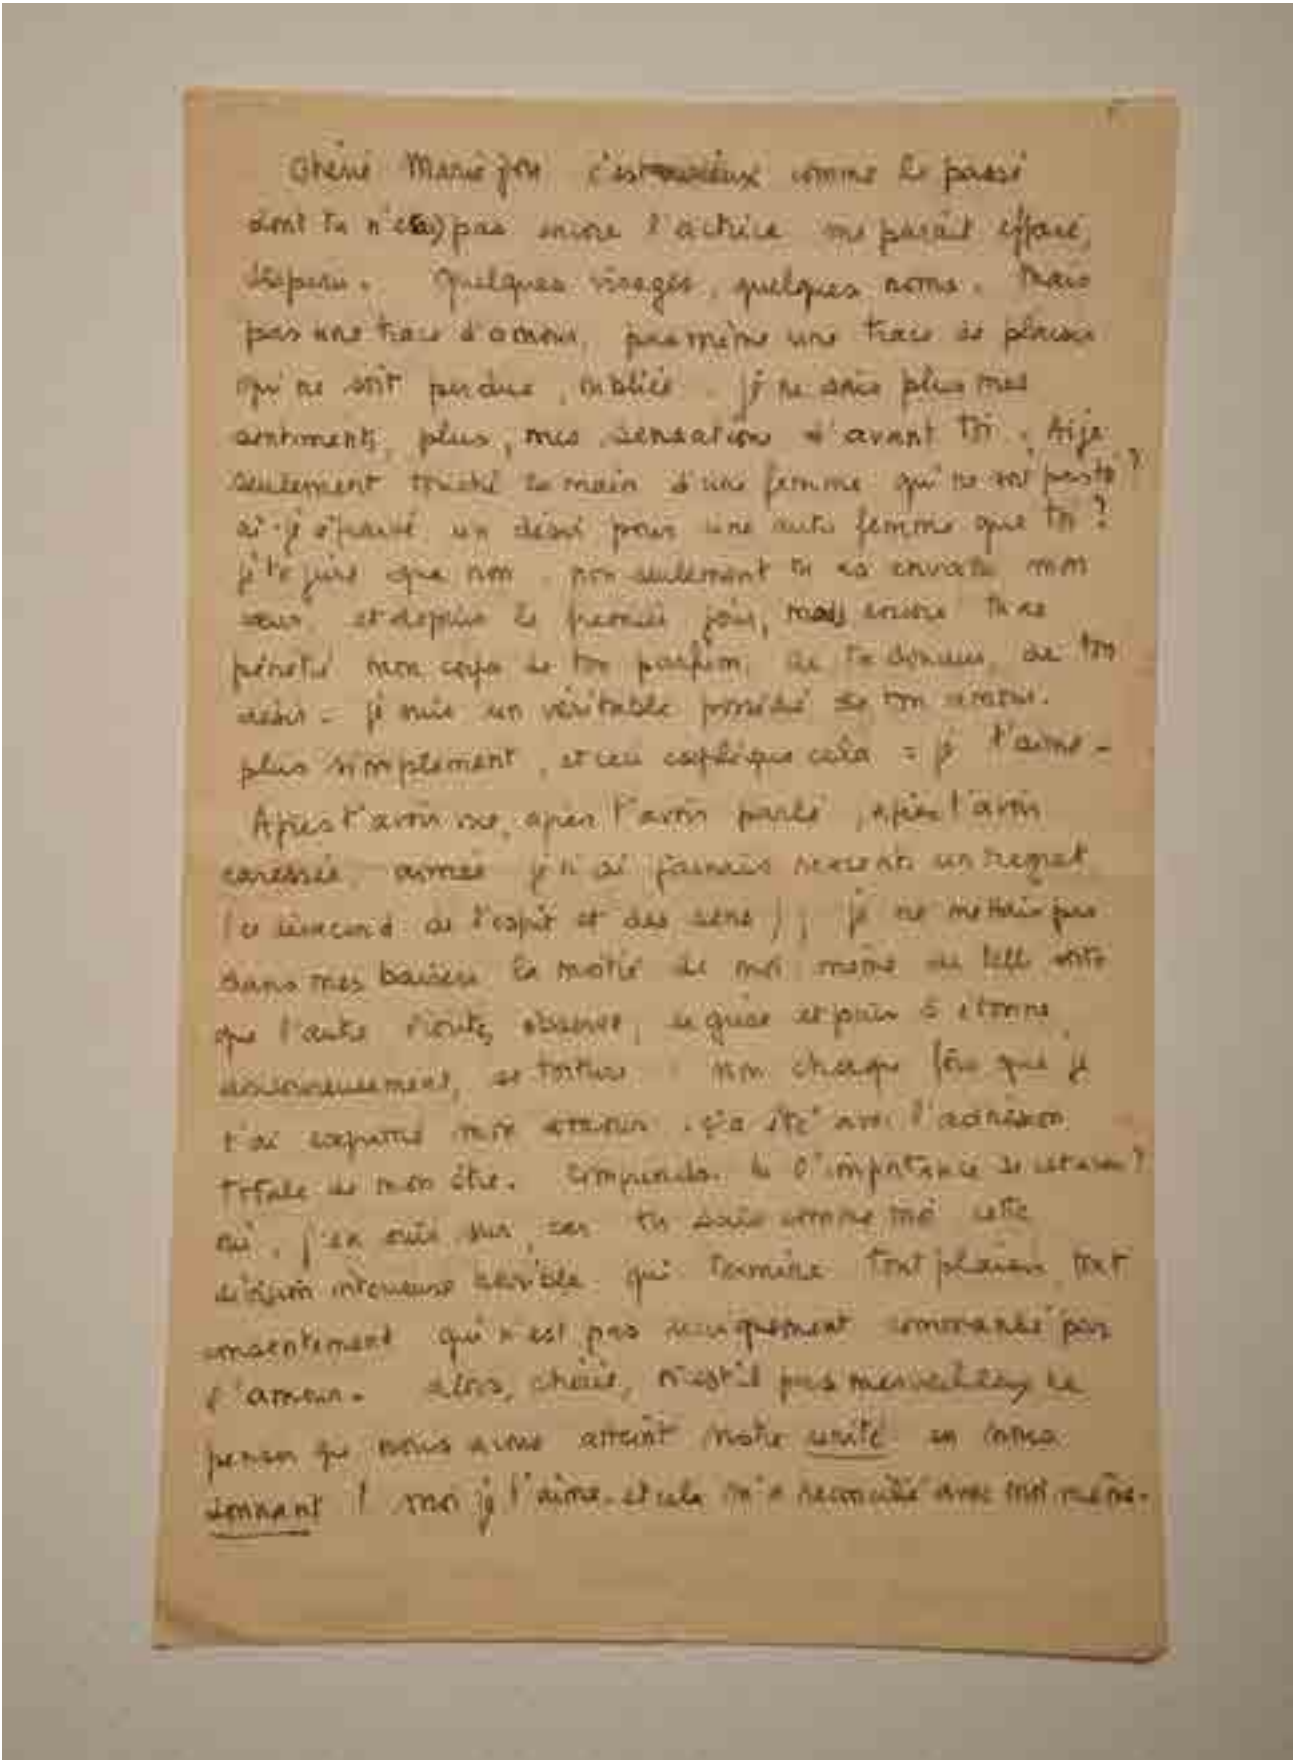 Chérie Marie José c'est curieux comme le passé
dont tu n'es pas encore l'actrice me paraît effacé,
disparu. Quelques visages, quelques noms. Mais
pas une trace d'amour, pas même une trace de plaisir
qui ne soit perdue, oubliée. je ne sais plus mes
sentiments, plus, mes sensations d'avant toi. Ai je
seulement touché la main d'une femme qui ne soit pas toi?
ai-je éprouvé un désir pour une autre femme que toi?
je te jure que non. non seulement tu as envahi mon
cœur, et depuis le premier jour, mais encore tu as
pénétré mon corps de ton parfum, de ta douceur, de ton
désir. je suis un véritable possédé de ton amour.
plus simplement, et ceci explique cela = je t'aime -
Après t'avoir vue, après t'avoir parlé, après t'avoir
caressée, aimée je n'ai jamais ressenti un regret
(ce désaccord de l'esprit et des sens); je ne mettais pas
dans mes baisers la moitié de moi même de telle sorte
que l'autre écoute, observe, se grise et puis s'étonne
douloureusement, se torture. non chaque fois que je
t'ai exprimé mon amour ça été avec l'adhésion
totale de mon être. Comprends tu l'importance de cet aveu?
oui, j'en suis sûr, car tu sais comme moi cette
division intérieure terrible qui termine tout plaisir, tout
consentement qui n'est pas uniquement commandé par
l'amour. Alors, chérie, n'est il pas merveilleux de
penser que nous avons atteint notre unité en nous
donnant! moi je t'aime. et cela m'a réconcilié avec moi même.